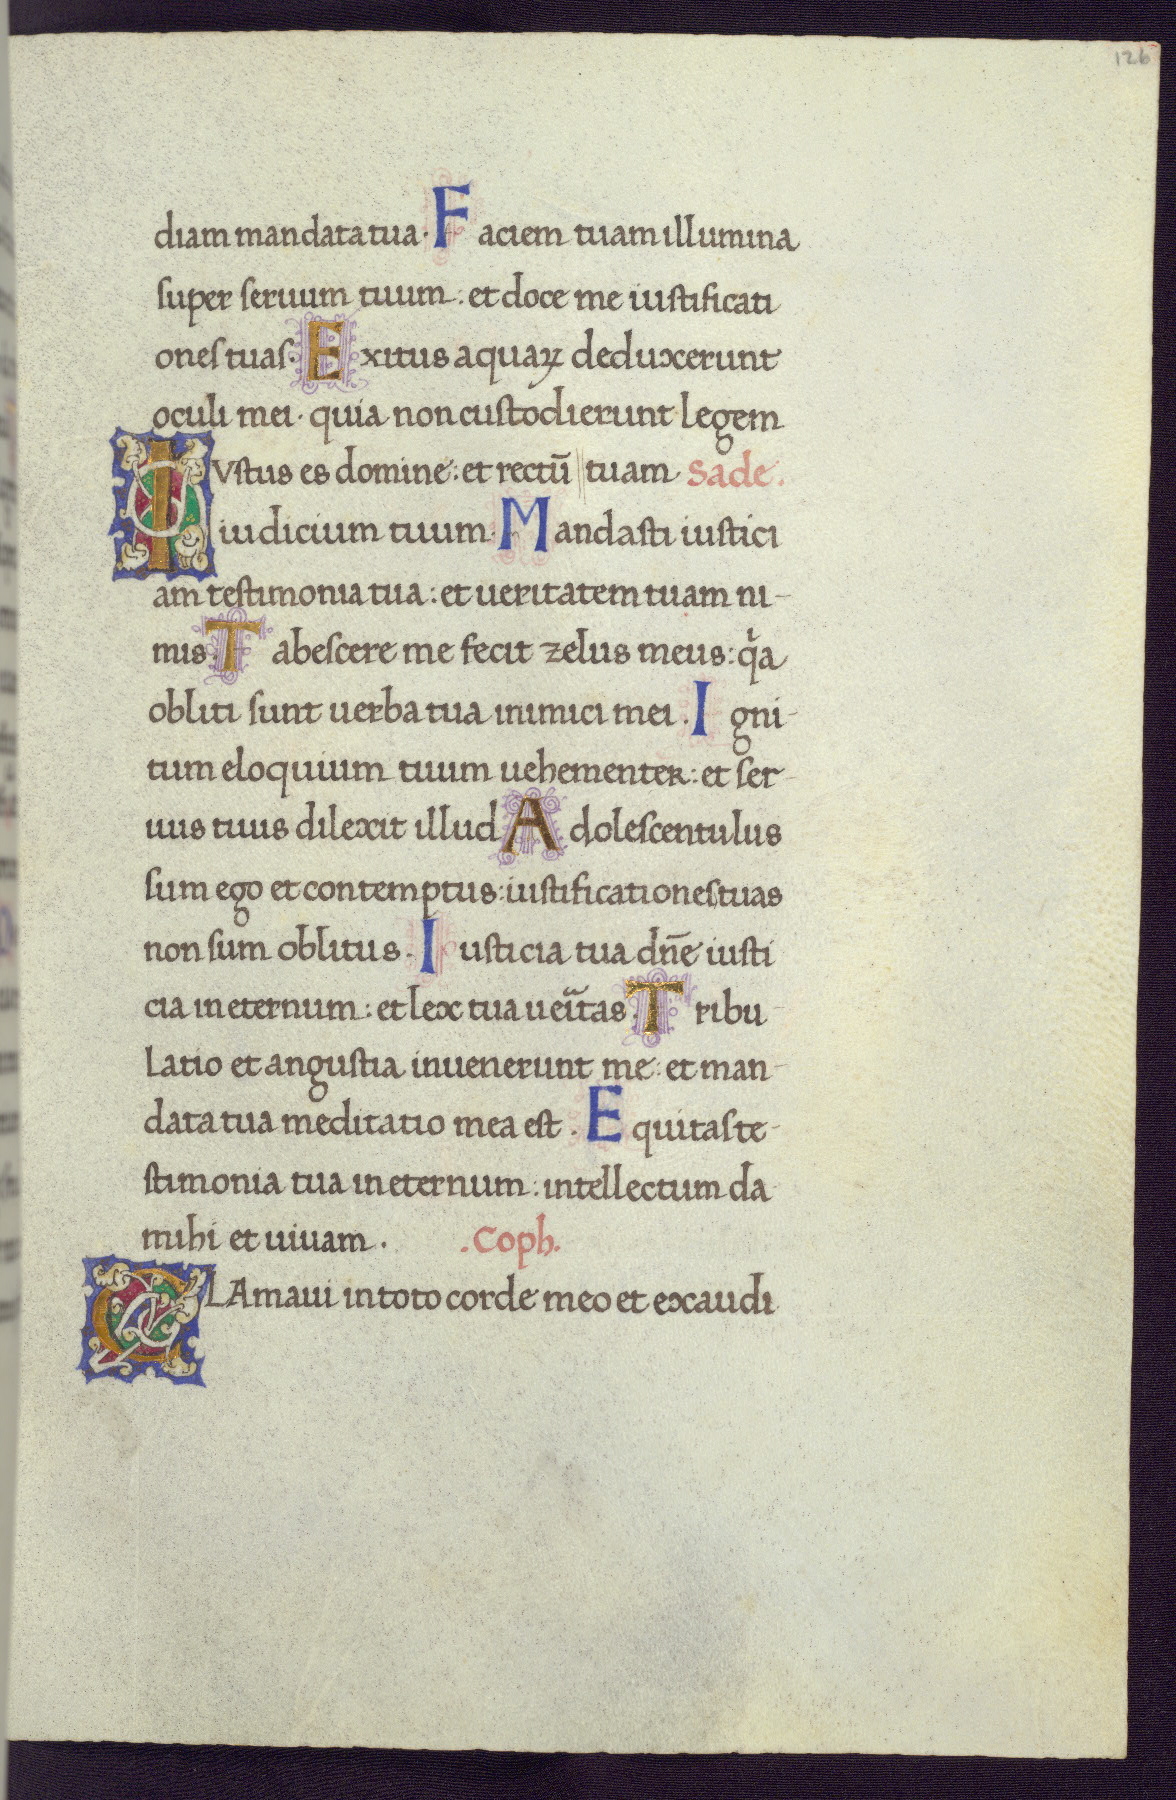 126
diam mandata tua· Faciem tuam illumina
super seruum tuum: et doce me iustificati
ones tuas· Exitus aquaꝝ deduxerunt
oculi mei· quia non custodierunt legem
IVstus es domine: et rectū tuam Sade.
iudicium tuum· Mandasti iustici
am testimonia tua: et ueritatem tuam ni-
mis· Tabescere me fecit zelus meus: qͥa
obliti sunt uerba tua inimici mei. Igni-
tum eloquium tuum uehementer: et ser-
uus tuus dilexit illud Adolescentulus
sum ego et contemptus: iustificationes tuas
non sum oblitus. Iusticia tua dn̄e iusti
cia in eternum: et lex tua ueı̄tas· Tribu-
latio et angustia inuenerunt me: et man-
data tua meditatio mea est. Equitas te-
stimonia tua in eternum: intellectum da
mihi et uiuam. .Coph.
CLAmaui in toto corde meo et exaudi